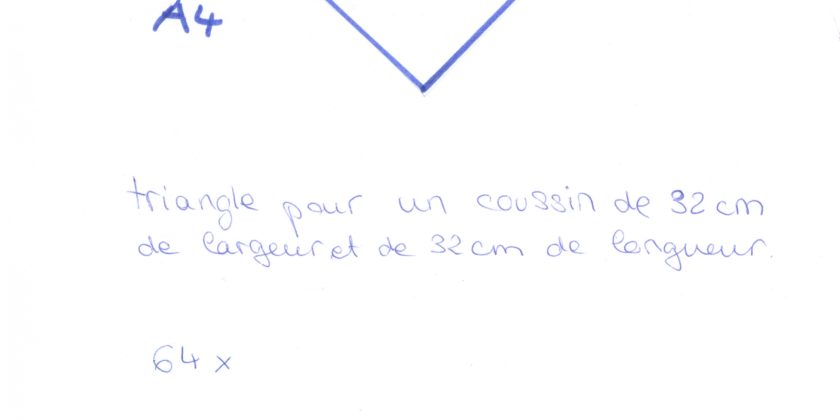 A4
triangle pour un coussin de 32 cm
de largeur et de 32 cm de longueur.
64 x